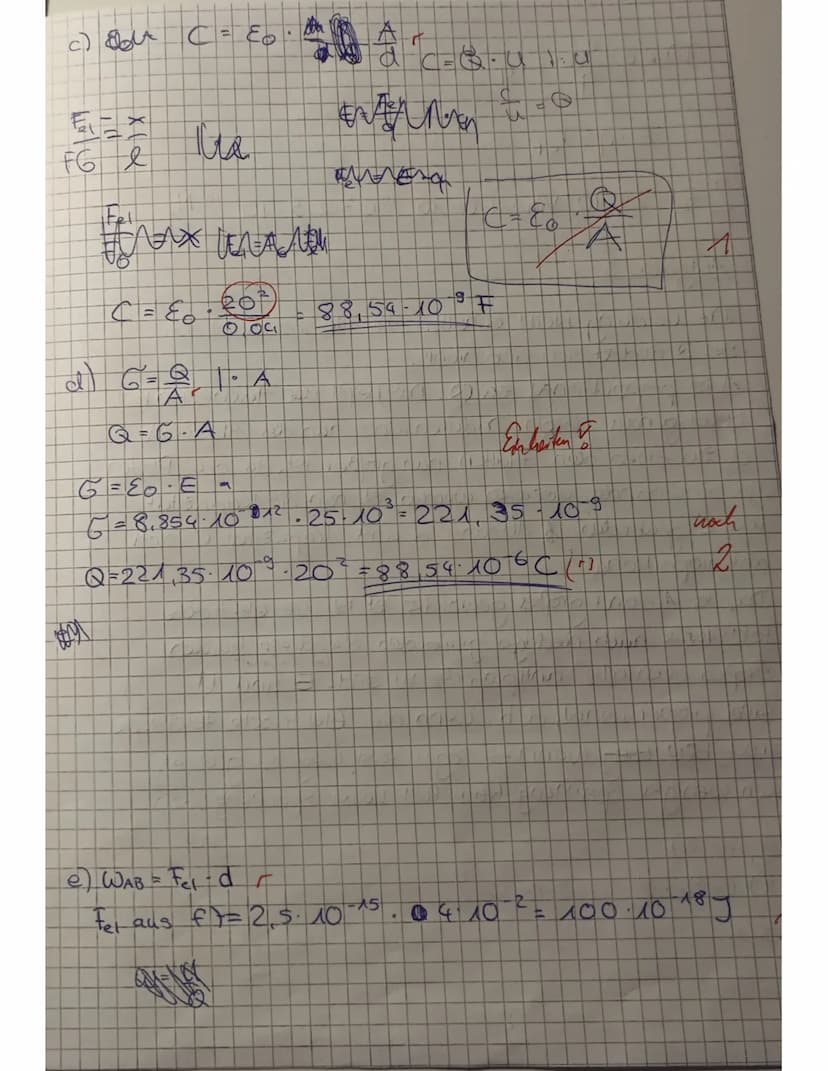 c) C = ε0 · A/d r
C = Q · U | : U
C/U = Q
Fel/FG = x/l
C = ε0 · Q/A
1
C = ε0 · 20²/0,04 = 88,54 · 10⁻⁹ F
d) σ = Q/A r | · A
Q = σ · A
Einheiten!
σ = ε0 · E
σ = 8,854 · 10⁻¹² · 25 · 10³ = 221,35 · 10⁻⁹
noch
Q = 221,35 · 10⁻⁹ · 20² = 88,54 · 10⁻⁶ C (r)
2
e) WAB = Fel · d r
Fel aus f) = 2,5 · 10⁻¹⁵ · 4 · 10⁻² = 100 · 10⁻¹⁸ J